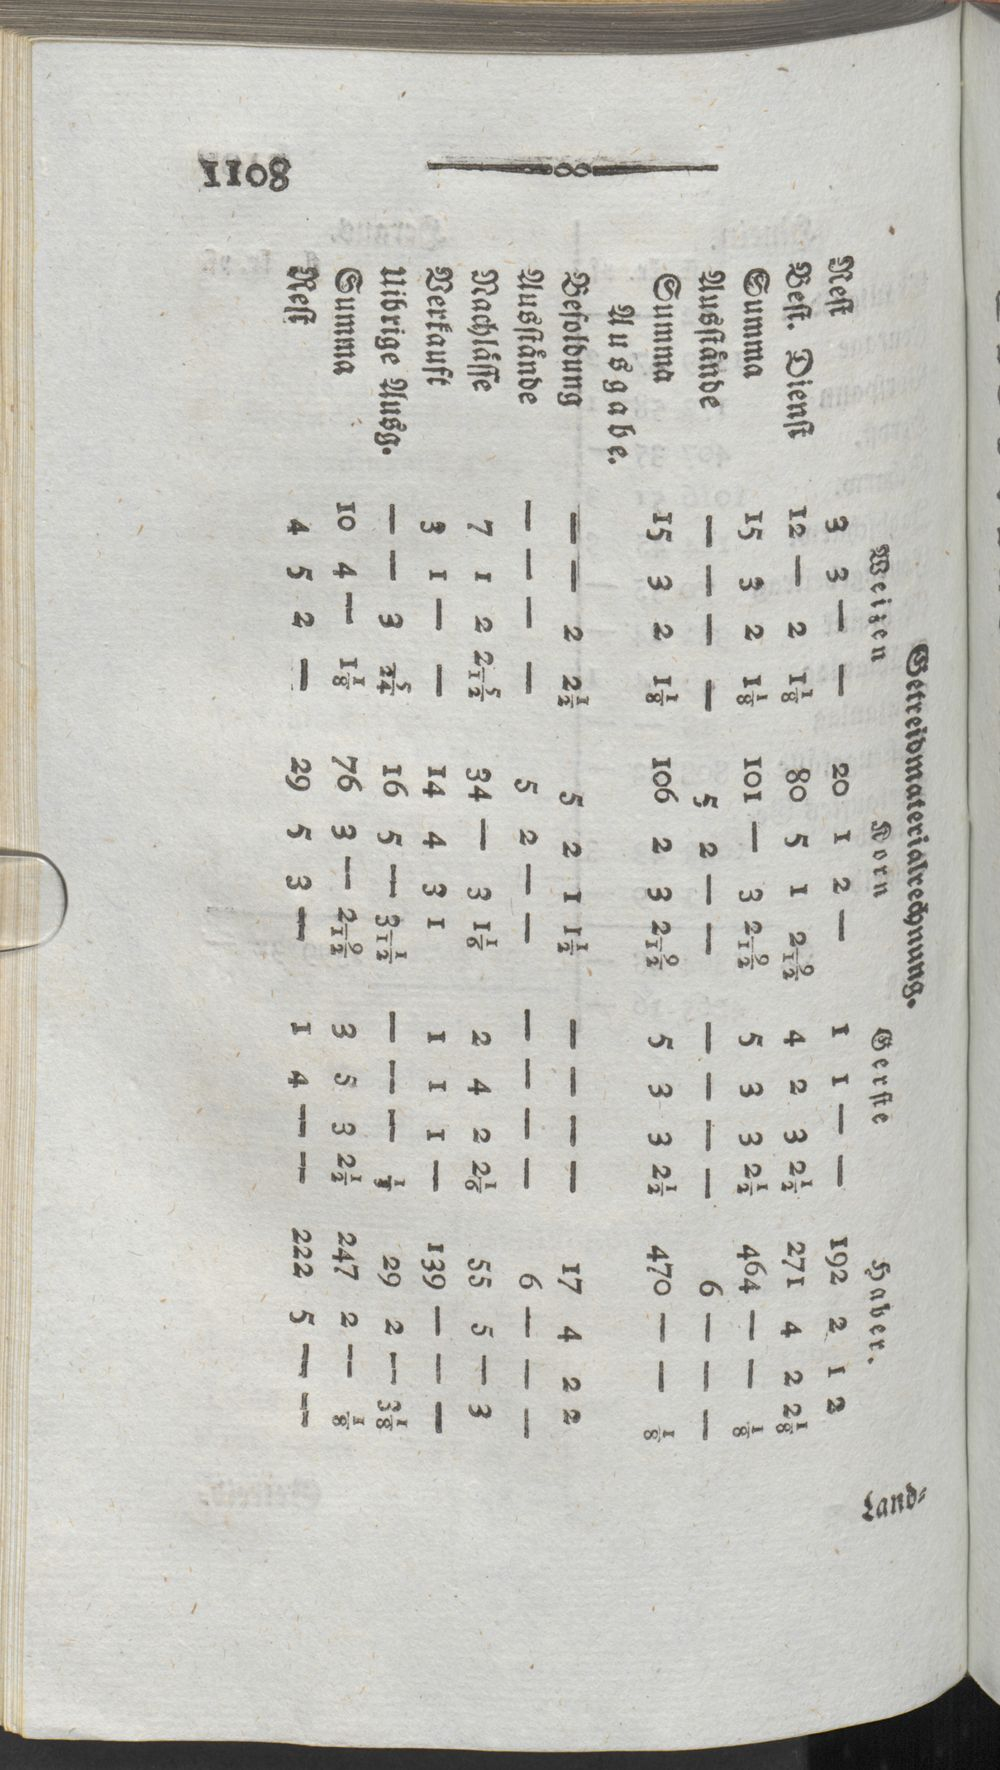 8011
Getreidmaterialrechnung.
Weizen Korn Gerste Haber.
Rest 3 3 — — 20 1 2 — 1 1 — — 192 2 1 2
Best. Dienst 12 — 2 1⅛ 80 5 1 2 9/12 4 2 3 2½ 271 4 2 2⅛
Summa 15 3 2 1⅛ 101 — 3 2 9/12 5 3 3 2½ 464 — — ⅛
Ausstände — — — — 5 2 — — — — — — 6 — — —
Summa 15 3 2 1⅛ 106 2 3 2 9/12 5 3 3 2½ 470 — — ⅛
Ausgabe.
Besoldung — — 2 2½ 5 2 1 1½ — — — — 17 4 2 2
Ausstände — — — — 5 2 — — — — — — 6 — — —
Nachlässe 7 1 2 2 5/12 34 — 3 1⅙ 2 4 2 2⅙ 55 5 — 3
Verkauft 3 1 — — 14 4 3 1 1 1 1 — 139 — — —
Uibrige Ausg. — — 3 5/24 16 5 — 3 1/12 — — — ⅓ 29 2 — 3⅛
Summa 10 4 — 1⅛ 76 3 — 2 9/12 3 5 3 2½ 247 2 — ⅛
Rest 4 5 2 — 29 5 3 — 1 4 — — 222 5 — —
Land-